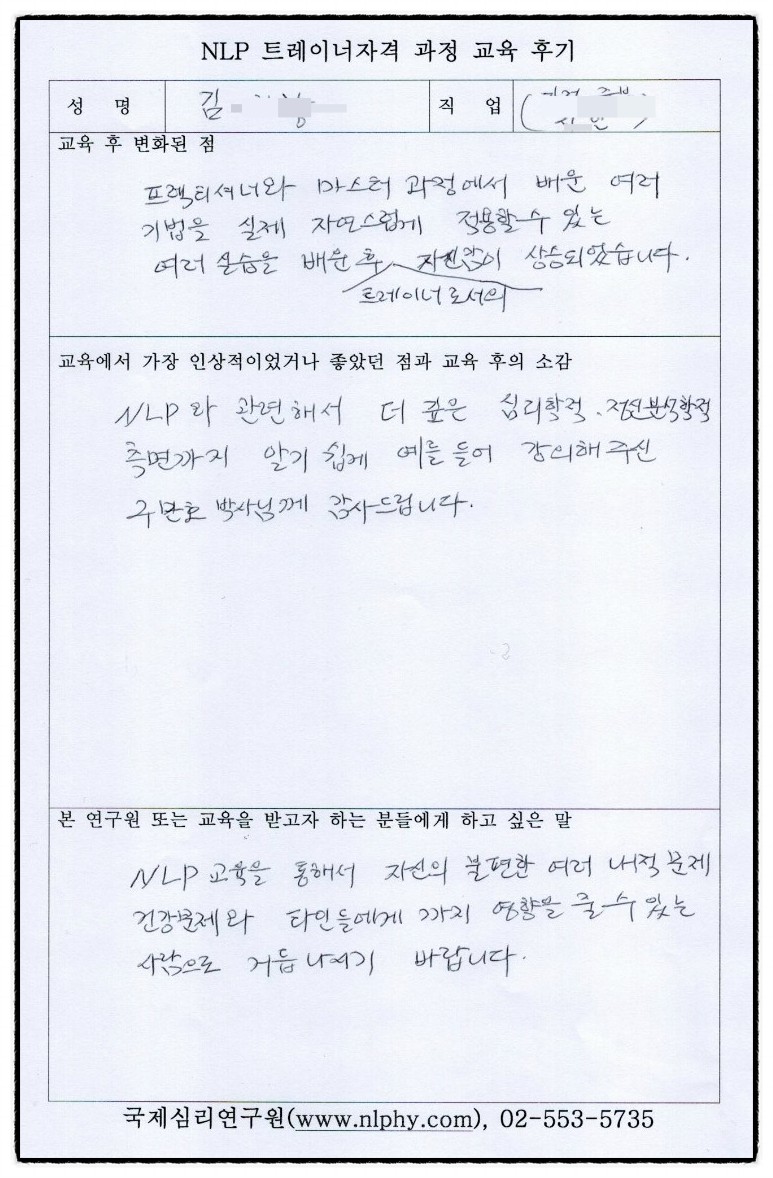 NLP 트레이너자격 과정 교육 후기
성 명 김
직 업
교육 후 변화된 점
프랙티셔너와 마스터 과정에서 배운 여러
기법을 실제 자연스럽게 적용할 수 있는
여러 실습을 배운 후, 자신감이 상승되었습니다.
트레이너로서의
교육에서 가장 인상적이었거나 좋았던 점과 교육 후의 소감
NLP와 관련해서 더 깊은 심리학적, 정신분석학적
측면까지 알기 쉽게 예를 들어 강의해 주신
구만호 박사님께 감사드립니다.
본 연구원 또는 교육을 받고자 하는 분들에게 하고 싶은 말
NLP 교육을 통해서 자신의 불편한 여러 내적 문제
건강문제와 타인들에게 까지 영향을 줄 수 있는
사람으로 거듭나시기 바랍니다.
국제심리연구원(www.nlphy.com), 02-553-5735